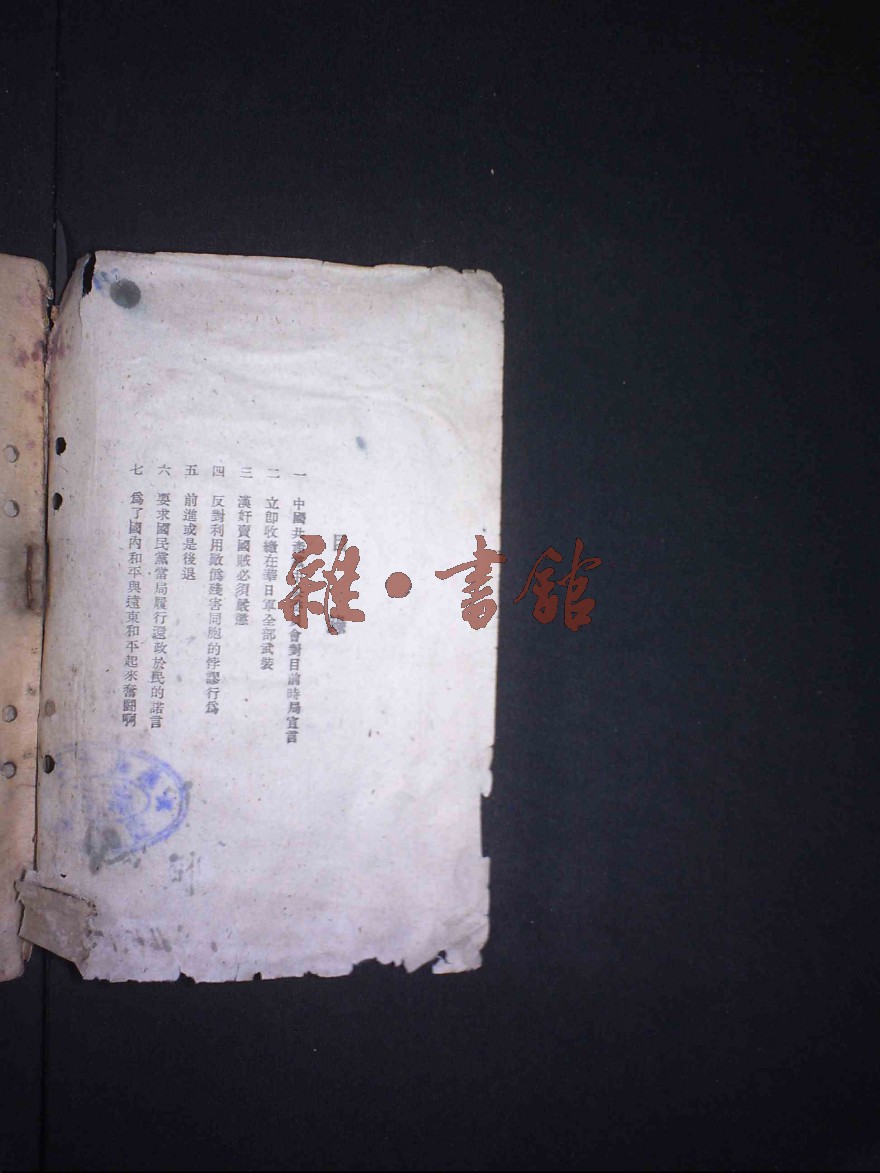 目錄
一 中國共產黨中央委員會對目前時局宣言
二 立卽收繳在華日軍全部武裝
三 漢奸賣國賊必須嚴懲
四 反對利用敵僞殘害同胞的悖謬行爲
五 前進或是後退
六 要求國民黨當局履行還政於民的諾言
七 爲了國內和平與遠東和平起來奮鬪啊
雜·書館